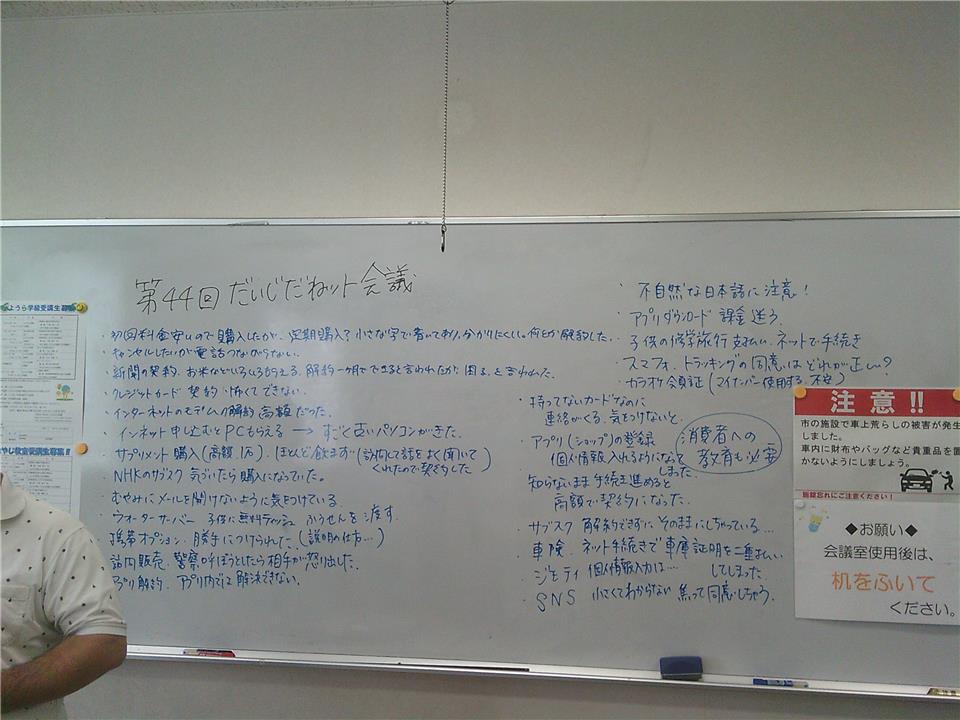 第44回 だいじだねット会議
・初回料金安いので購入したが、定期購入？小さな字で書いており、分かりにくい。何とか解約した。
・キャンセルしたいが電話つながらない。
・新聞の契約、お米などいろいろもらえる。解約一ヶ月でできると言われたが、困る。と言われた。
・クレジットカード 契約 怖くてできない。
・インターネットのモデム 解約 高額だった。
・インネット申し込むとPCもらえる → すごく古いパソコンがきた。
サプリメント購入（高額 1万）. ほとんど飲まず（訪問して話をよく聞いて
くれたので契約した）
NHKのサブスク 気づいたら購入になっていた。
むやみにメールを開けないように気をつけている.
ウォーターサーバー 子供に無料ティッシュ ふうせんを渡す.
携帯オプション. 勝手につけられた.（説明の仕方...）
訪問販売. 警察呼ぼうとしたら相手が怒り出した.
アプリ解約. アプリ内では解決できない.
・不自然な日本語に注意！
・アプリダウンロード 課金迷う.
・子供の修学旅行 支払い. ネットで手続き
・スマフォ. トラッキングの同意はどれが正しい？
・カラオケ会員証（マイナンバー使用する. 不安）
・持ってないカードなのに
連絡がくる. 気をつけないと.
・アプリ（ショップ）の登録
個人情報入れるようになって
しまった.
知らないまま手続き進めると
高額で契約になった.
・サブスク 解約できずに そのままにしちゃっている...
・車険. ネット手続きで車庫証明を二重払い
してしまった.
・ジモティ 個人情報入力は...
・SNS 小さくてわからない 焦って同意しちゃう.
消費者への
教育も必要
ようら学級受講生募集
やし教室受講生募集!!
注意!!
市の施設で車上荒らしの被害が発生
しました。
車内に財布やバッグなど貴重品を置
かないようにしましょう。
施錠忘れにご注意ください！
◆お願い◆
会議室使用後は、
机をふいて
ください。